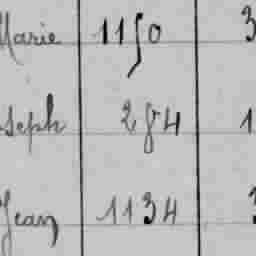 Marie 1150 3
seph 284 1
Jean 1134 3